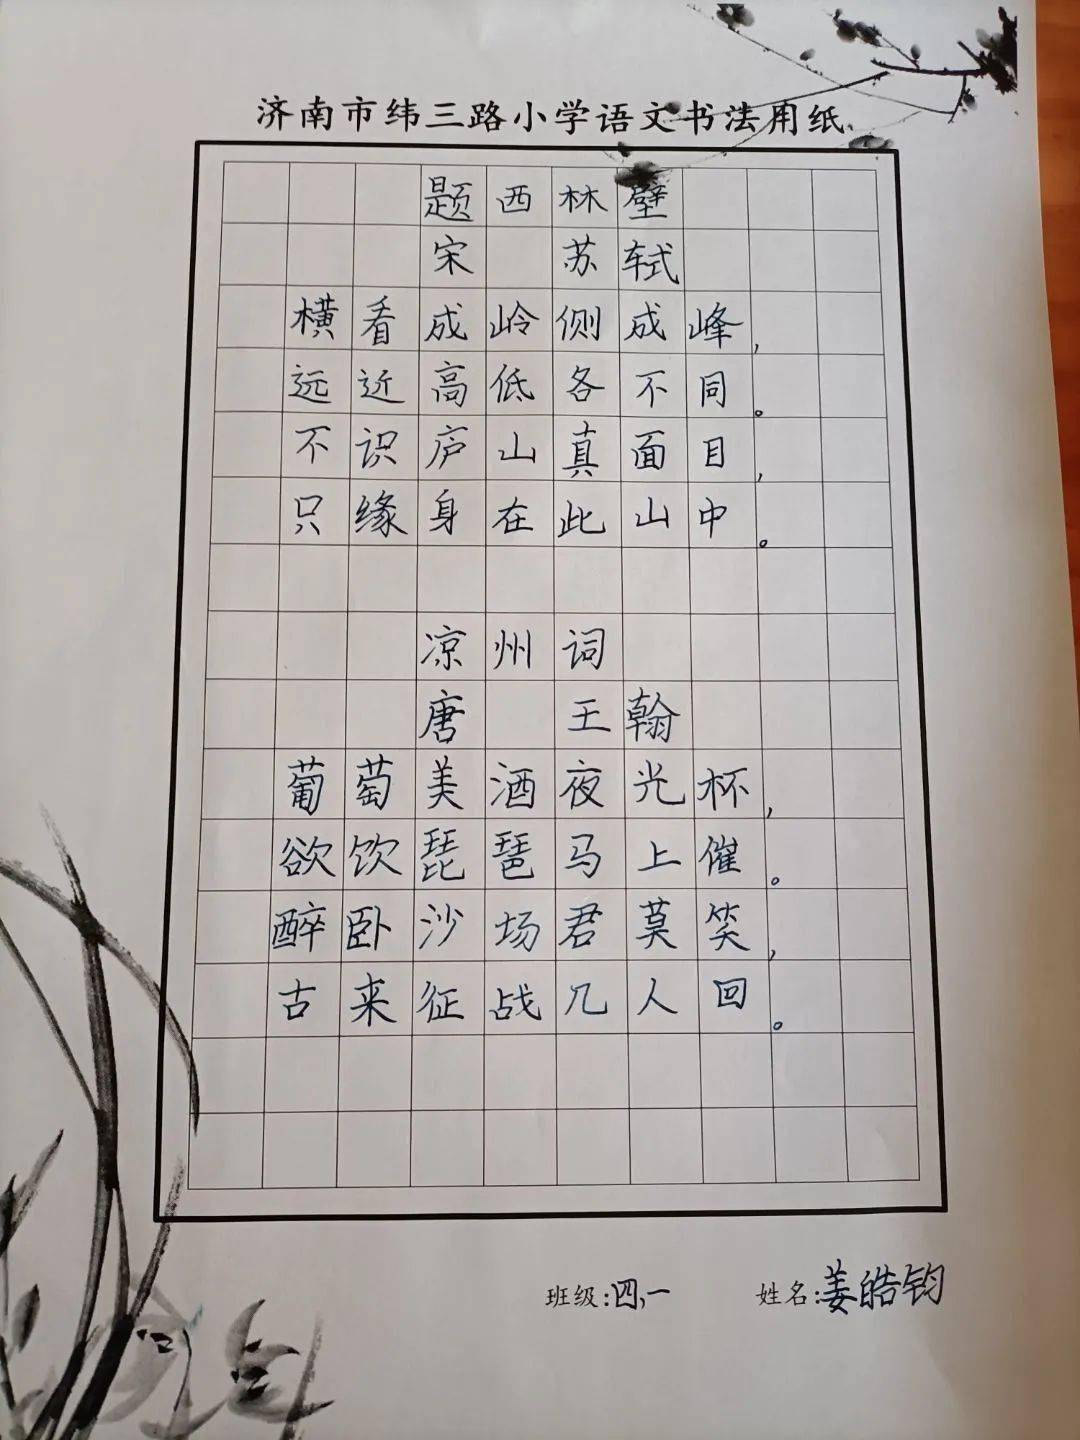 济南市纬三路小学语文书法用纸
题西林壁
宋 苏轼
横看成岭侧成峰,
远近高低各不同。
不识庐山真面目,
只缘身在此山中。
凉州词
唐 王翰
葡萄美酒夜光杯,
欲饮琵琶马上催。
醉卧沙场君莫笑,
古来征战几人回。
班级:四,一 姓名:姜皓钧